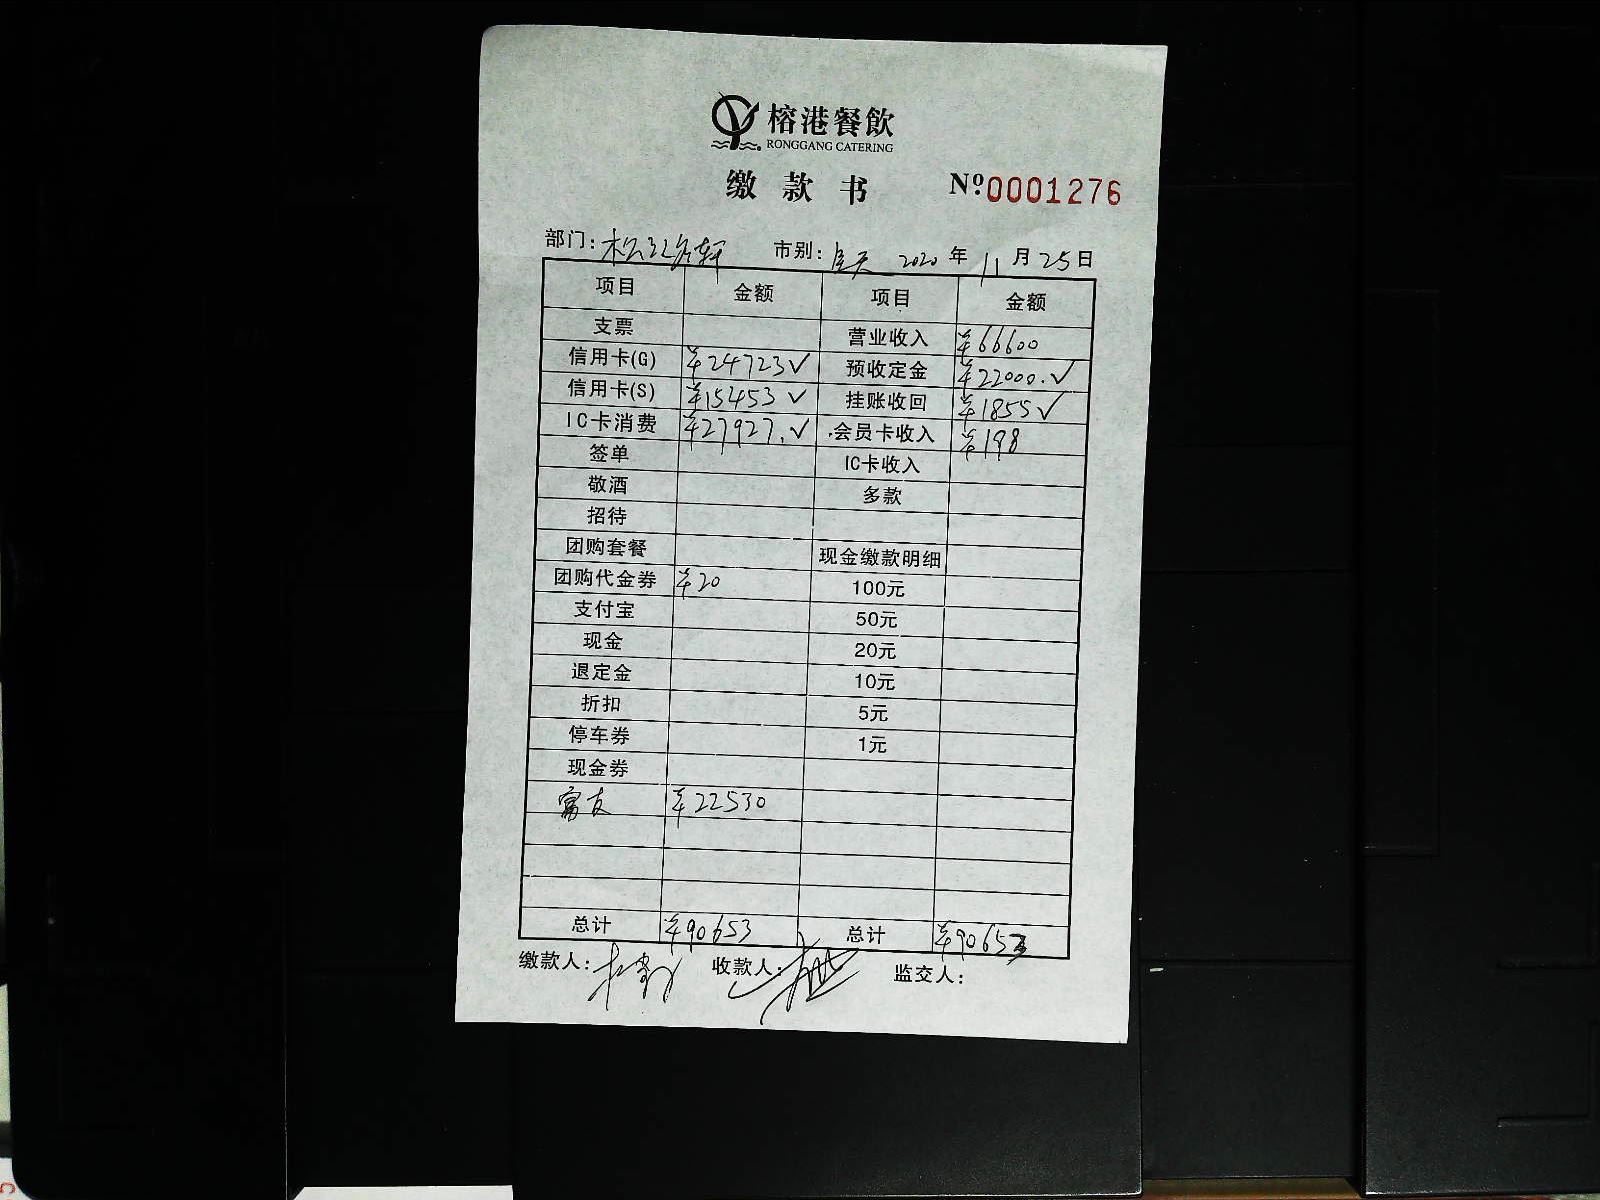 榕港餐飲
RONGGANG CATERING
缴款书 Nº:0001276
部门: 松江名轩 市别: 全天 2020 年 11 月 25 日
项目 金额 项目 金额
支票 营业收入 ¥66600
信用卡(G) ¥24723✓ 预收定金 ¥22000.✓
信用卡(S) ¥15453✓ 挂账收回 ¥1855✓
IC卡消费 ¥27927.✓ 会员卡收入 ¥198
签单 IC卡收入
敬酒 多款
招待
团购套餐 现金缴款明细
团购代金券 ¥20 100元
支付宝 50元
现金 20元
退定金 10元
折扣 5元
停车券 1元
现金券
富友 ¥22530
总计 ¥90653 总计 ¥90653
缴款人: 收款人: 监交人: